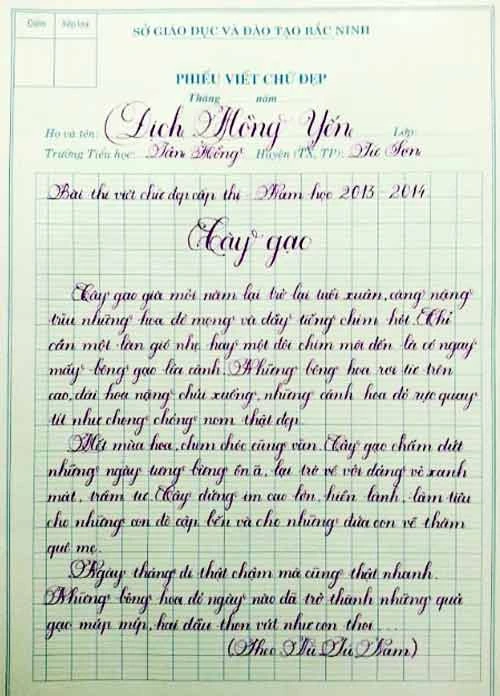 Điểm Xếp loại
SỞ GIÁO DỤC VÀ ĐÀO TẠO BẮC NINH
PHIẾU VIẾT CHỮ ĐẸP
Tháng năm
Họ và tên: Dích Mồng Yến Lớp:
Trường Tiểu học: Tân Hồng Huyện (TX, TP): Từ Sơn
Bài thi viết chữ đẹp cấp thị - Năm học 2013 - 2014
Cây gạo
Cây gạo già mỗi năm lại trở lại tuổi xuân, càng nặng
trĩu những hoa đỏ mọng và đầy tiếng chim hót. Chỉ
cần một làn gió nhẹ hay một đôi chim mới đến là có ngay
mấy bông gạo lìa cành. Những bông hoa rơi từ trên
cao, đài hoa nặng chúi xuống, những cánh hoa đỏ rực quay
tít như chong chóng nom thật đẹp.
Hết mùa hoa, chim chóc cũng vãn. Cây gạo chấm dứt
những ngày tưng bừng ồn ã, lại trở về với dáng vẻ xanh
mát, trầm tư. Cây đứng im cao lớn, hiền lành, làm tiêu
cho những con đò cập bến và cho những đứa con về thăm
quê mẹ.
Ngày tháng đi thật chậm mà cũng thật nhanh.
Những bông hoa đỏ ngày nào đã trở thành những quả
gạo múp míp, hai đầu thon vút như con thoi...
(Theo Vũ Tú Nam)